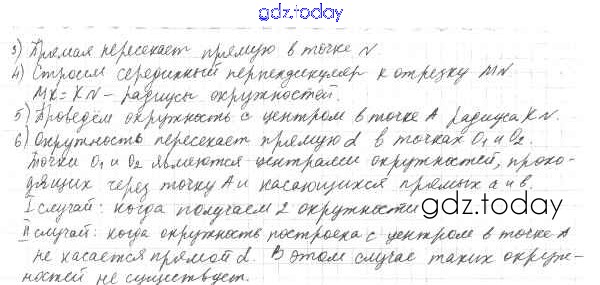 gdz.today
3) Прямая пересекает прямую в точке N.
4) Строим серединный перпендикуляр к отрезку MN
MK = KN - радиусы окружностей.
5) Проведём окружность с центром в точке A радиуса KN.
6) Окружность пересекает прямую d в точках O1 и O2.
Точки O1 и O2 являются центрами окружностей, прохо-
дящих через точку A и касающихся прямых a и b.
I случай: когда получаем 2 окружности
gdz.today
II случай: когда окружность построена с центром в точке A
не касается прямой d. В этом случае таких окруж-
ностей не существует.